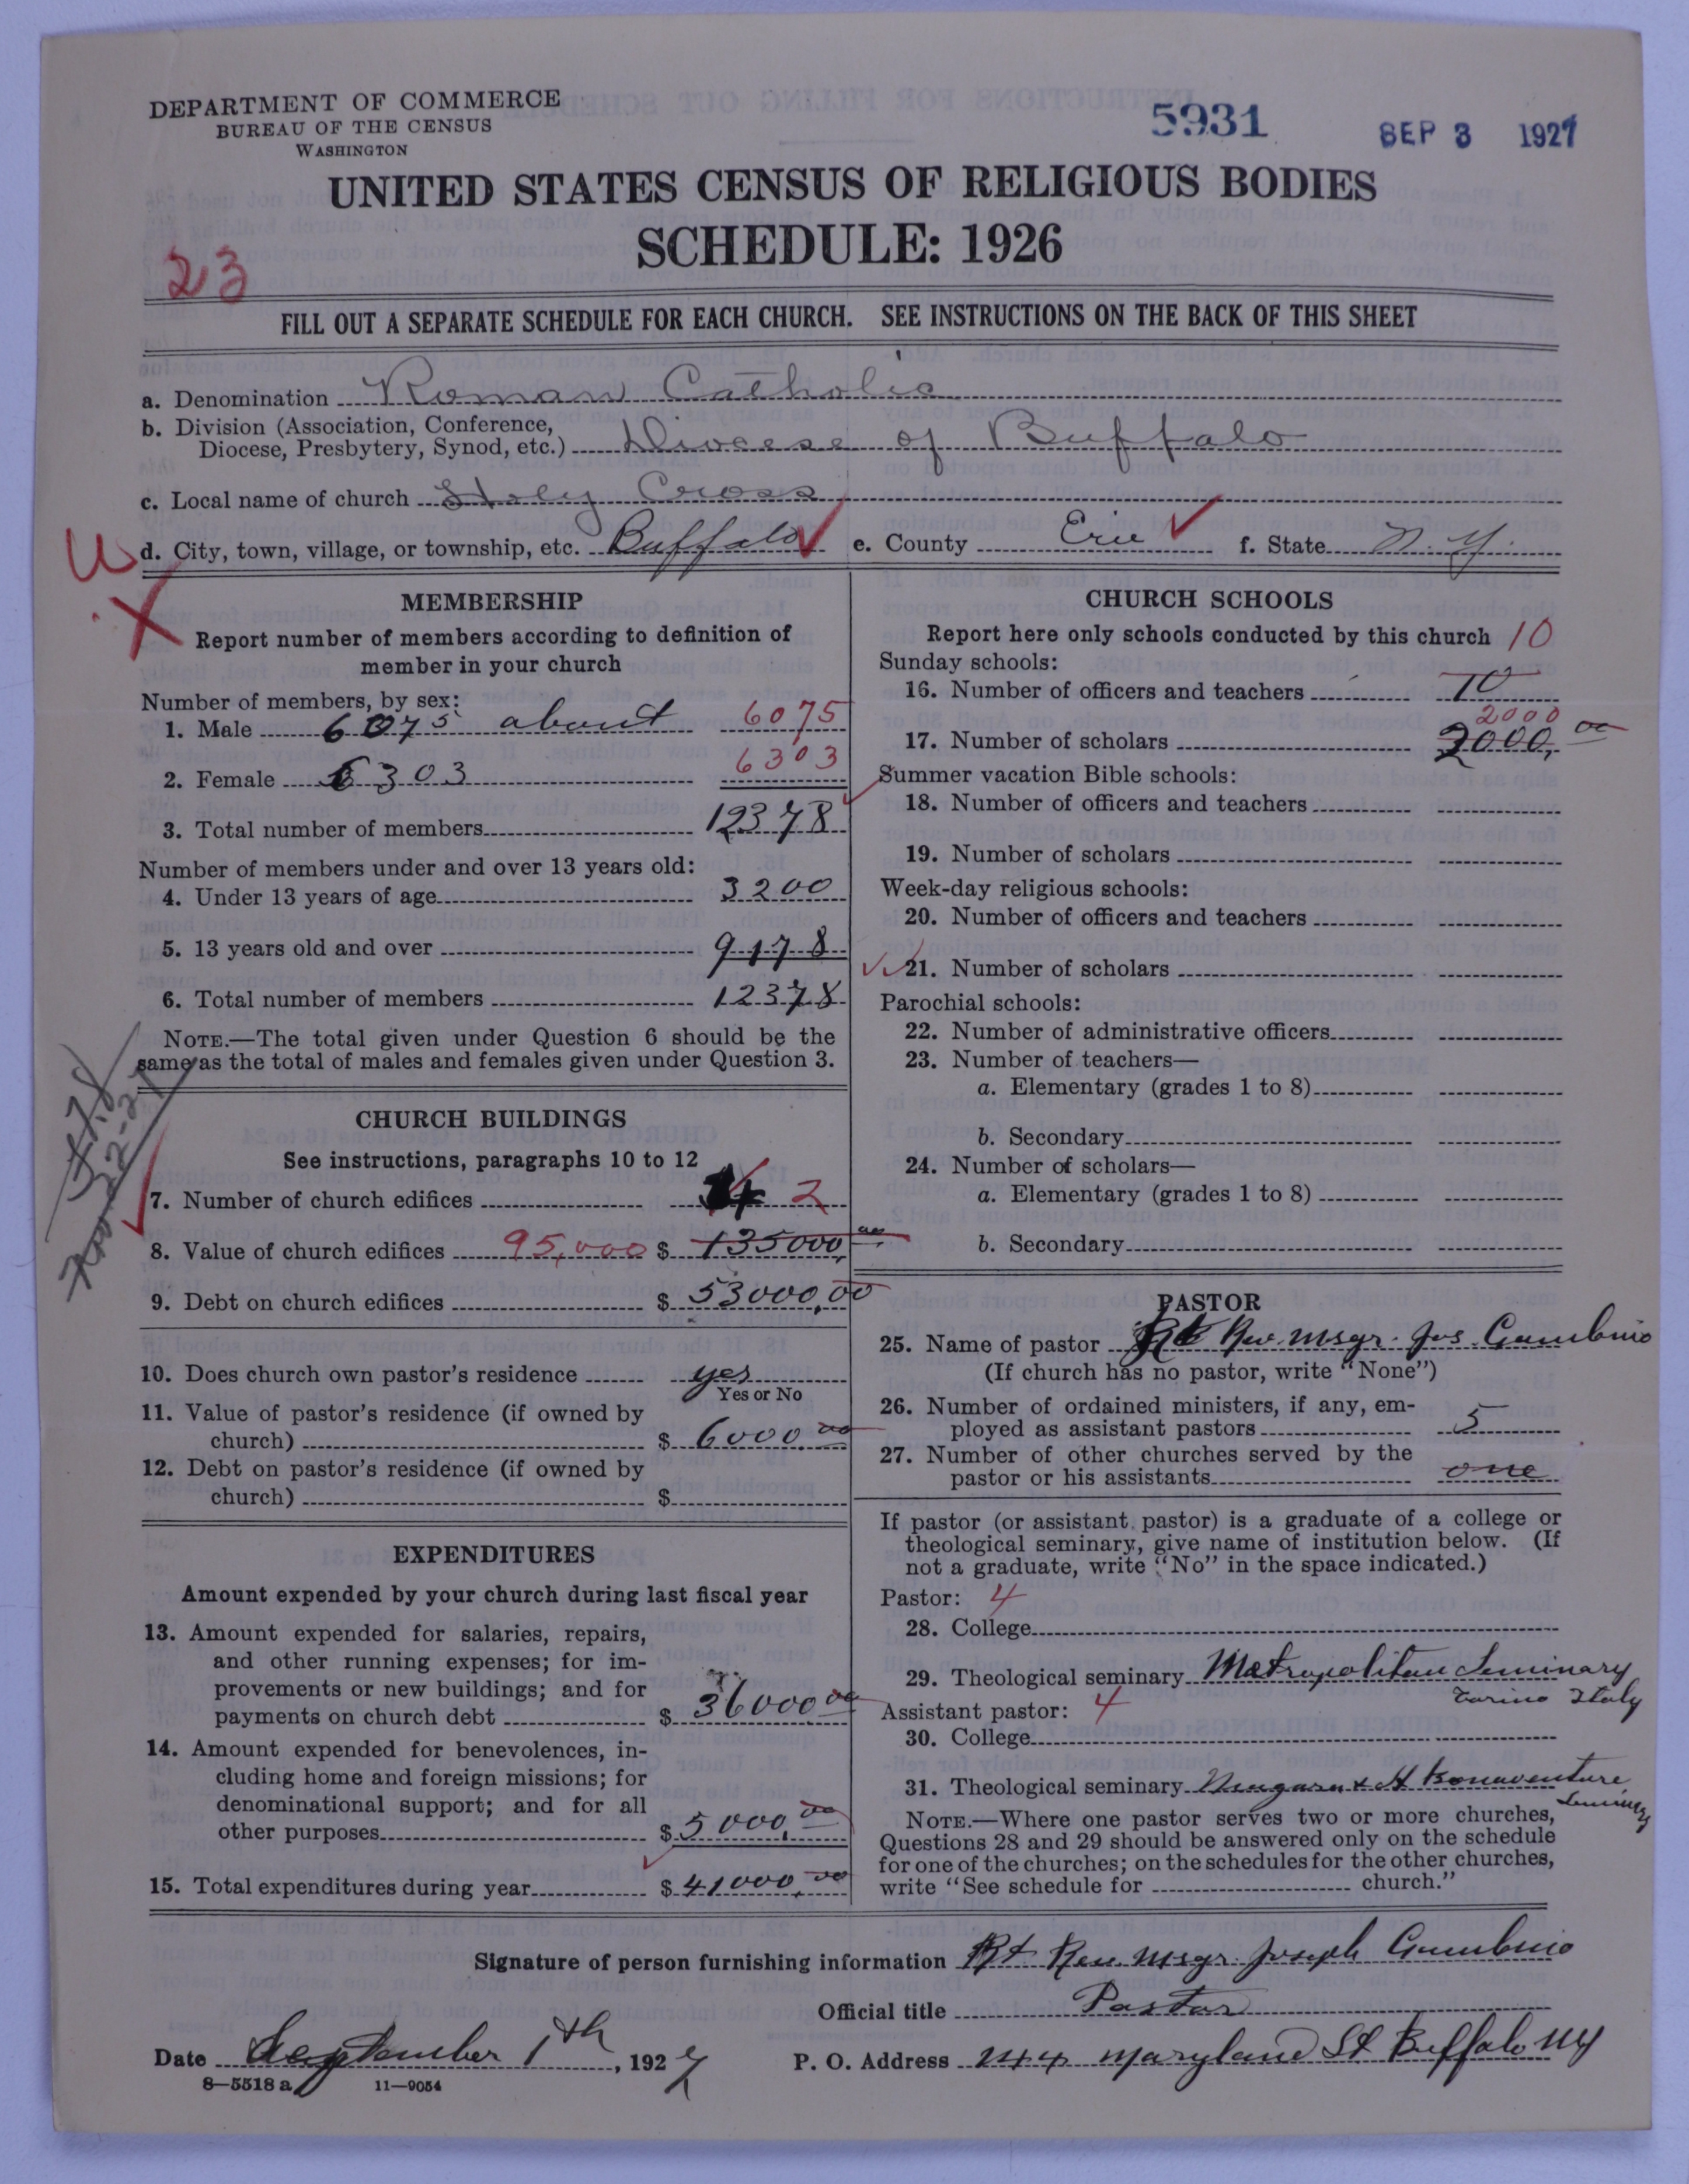 DEPARTMENT OF COMMERCE
BUREAU OF THE CENSUS
WASHINGTON
5931
SEP 3 1927
UNITED STATES CENSUS OF RELIGIOUS BODIES
SCHEDULE: 1926
23
FILL OUT A SEPARATE SCHEDULE FOR EACH CHURCH. SEE INSTRUCTIONS ON THE BACK OF THIS SHEET
a. Denomination Roman Catholic
b. Division (Association, Conference,
Diocese, Presbytery, Synod, etc.) Diocese of Buffalo
c. Local name of church Holy Cross
d. City, town, village, or township, etc. Buffalo e. County Erie f. State N.Y.
MEMBERSHIP
Report number of members according to definition of
member in your church
Number of members, by sex:
1. Male 6075 about 6075
2. Female 6303 6303
3. Total number of members 12378
Number of members under and over 13 years old:
4. Under 13 years of age 3200
5. 13 years old and over 9178
6. Total number of members 12378
NOTE.—The total given under Question 6 should be the
same as the total of males and females given under Question 3.
CHURCH BUILDINGS
See instructions, paragraphs 10 to 12
7. Number of church edifices 2
8. Value of church edifices 95,000 $ 135000,00
9. Debt on church edifices $ 53000,00
10. Does church own pastor's residence yes
Yes or No
11. Value of pastor's residence (if owned by
church) $ 6000.00
12. Debt on pastor's residence (if owned by
church) $
EXPENDITURES
Amount expended by your church during last fiscal year
13. Amount expended for salaries, repairs,
and other running expenses; for im-
provements or new buildings; and for
payments on church debt $ 36000 00
14. Amount expended for benevolences, in-
cluding home and foreign missions; for
denominational support; and for all
other purposes $ 5000,00
15. Total expenditures during year $ 41000,00
CHURCH SCHOOLS
Report here only schools conducted by this church 10
Sunday schools:
16. Number of officers and teachers 10
2000
17. Number of scholars 2000, 00
Summer vacation Bible schools:
18. Number of officers and teachers
19. Number of scholars
Week-day religious schools:
20. Number of officers and teachers
21. Number of scholars
Parochial schools:
22. Number of administrative officers
23. Number of teachers—
a. Elementary (grades 1 to 8)
b. Secondary
24. Number of scholars—
a. Elementary (grades 1 to 8)
b. Secondary
PASTOR
25. Name of pastor Rt Rev. Msgr. Jos Gambino
(If church has no pastor, write "None")
26. Number of ordained ministers, if any, em-
ployed as assistant pastors 5
27. Number of other churches served by the
pastor or his assistants one
If pastor (or assistant pastor) is a graduate of a college or
theological seminary, give name of institution below. (If
not a graduate, write "No" in the space indicated.)
Pastor: 4
28. College
29. Theological seminary Metropolitan Seminary
Torino Italy
Assistant pastor: 4
30. College
31. Theological seminary Niagara & St Bonaventure
Seminary
NOTE.—Where one pastor serves two or more churches,
Questions 28 and 29 should be answered only on the schedule
for one of the churches; on the schedules for the other churches,
write "See schedule for church."
Signature of person furnishing information Rt. Rev. Msgr. Joseph Gambino
Official title Pastor
Date September 1th, 1927 P. O. Address 244 Maryland St Buffalo NY
8—5518 a 11—9054